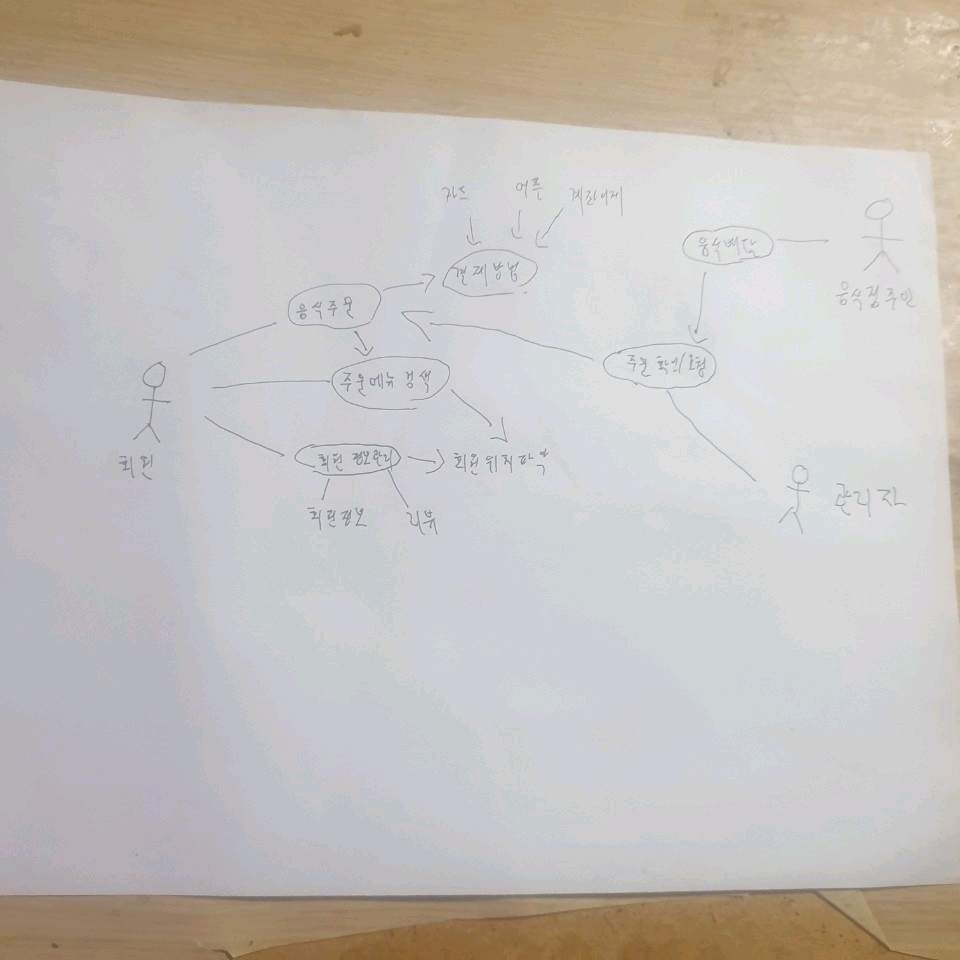 카드
어플
계좌이체
결제방법
음식배달
음식점주인
음식주문
주문메뉴 검색
주문 확인/요청
회원
회원 정보관리
회원위치파악
회원정보
리뷰
관리자